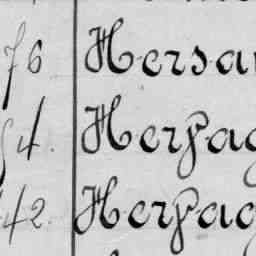 76 Hersan
94. Herpag
42. Herpag